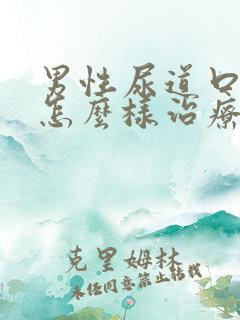 男性尿道口
怎麼樣治療
克里姆林
未经同意禁止转载